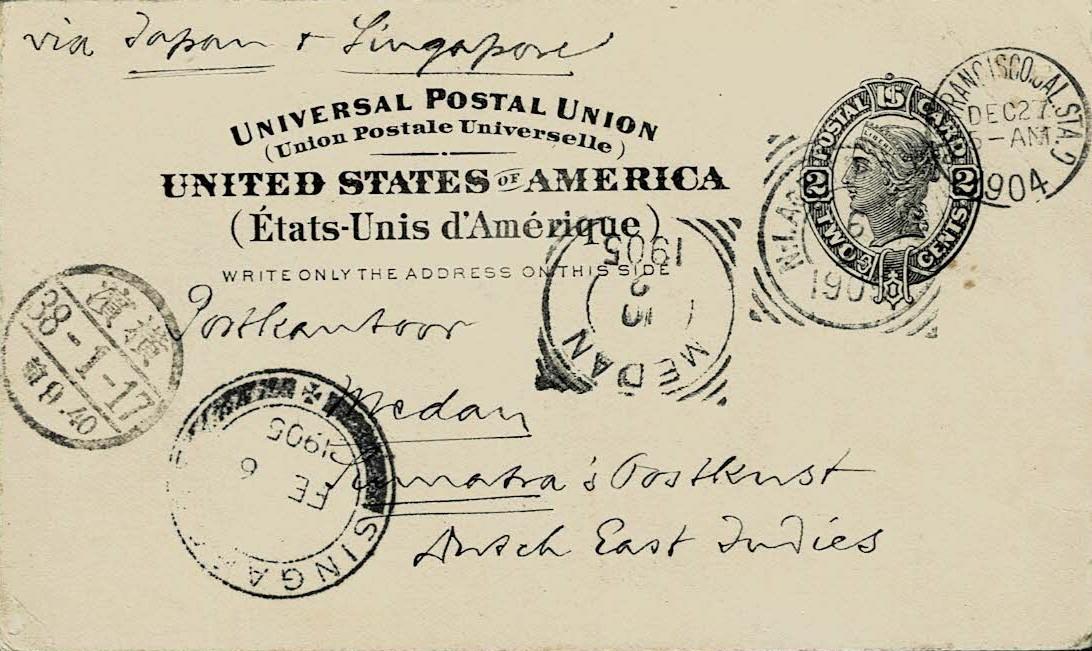 via Japan + Singapore
UNIVERSAL POSTAL UNION
(Union Postale Universelle)
UNITED STATES OF AMERICA
(États-Unis d'Amérique)
WRITE ONLY THE ADDRESS ON THIS SIDE
POSTAL CARD
U S
2 2
TWO CENTS
RANCISCO, CAL. STA. 9
DEC 27
5-AM
1904
N.I. A
190
1905
2
10
MEDAN
橫濱
38-1-17
前9.40
Postkantoor
Medan
Sumatra's Oostkust
Dutch East Indies
SINGA
FE
6
1905